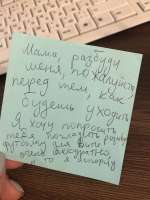 Мама, разбуди
меня, пожалуйста,
перед тем, как
будешь уходить
Я хочу попросить
тебя погладить
футболку
очень аккуратно
то я